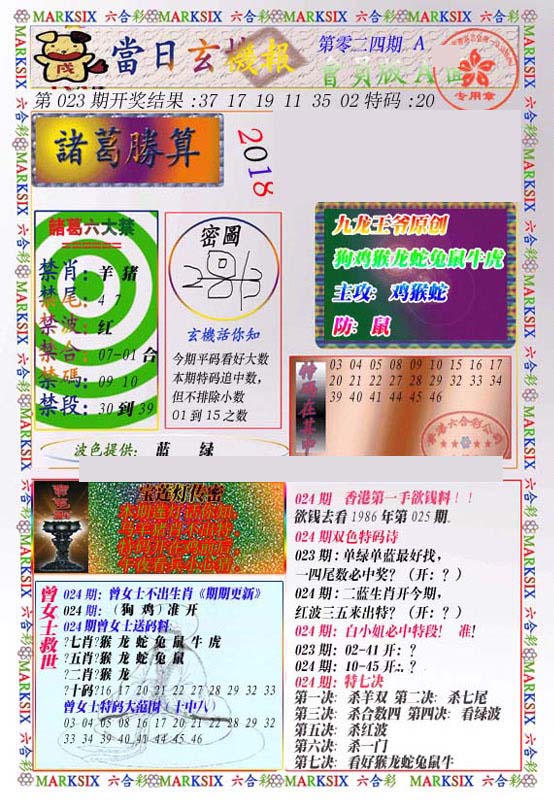 MARKSIX 六合彩 MARKSIX 六合彩 MARKSIX 六合彩 MARKSIX 六合彩
當日玄機報
第零二四期 A
會員版A面
专用章
第023期开奖结果:37 17 19 11 35 02特码:20
諸葛勝算
2018
諸葛六大禁
禁肖:羊猪
禁尾:4 7
禁波:红
禁合:07-01合
禁碼:09 10
禁段:30到39
密圖
玄機话你知
今期平码看好大数
本期特码追中数,
但不排除小数
01到15之数
九龙王爷原创
狗鸡猴龙蛇兔鼠牛虎
主攻: 鸡猴蛇
防: 鼠
特碼在其中
03 04 05 08 09 10 15 16 17
20 21 22 27 28 29 32 33 34
39 40 41 44 45 46
波色提供: 蓝 绿
宝莲灯传密
曾女士救世
024期:曾女士不出生肖《期期更新》
024期:(狗 鸡)准开
024期曾女士送码料:
?七肖?猴 龙 蛇 兔 鼠 牛 虎
?五肖?猴 龙 蛇 兔 鼠
?二肖?猴 龙
?十码?16 17 20 21 22 27 28 29 32 33
曾女士特码大范围(十中八)
03 04 05 08 16 17 20 21 22 28 29 32
33 34 39 40 41 44 45 46
024期 香港第一手欲钱料!!
欲钱去看1986年第025期.
024期双色特码诗
023期:单绿单蓝最好找,
一四尾数必中奖?(开:?)
024期:二蓝生肖开今期,
红波三五来出特?(开:?)
024期:白小姐必中特段! 准!
023期:02-41开:?
024期:10-45开:.?
024期:特七决
第一决: 杀羊双 第二决: 杀七尾
第三决: 杀合数四 第四决: 看绿波
第五决: 杀红波
第六决: 杀一门
第七决: 看好猴龙蛇兔鼠牛
MARKSIX 六合彩 MARKSIX 六合彩 MARKSIX 六合彩 MARKSIX 六合彩